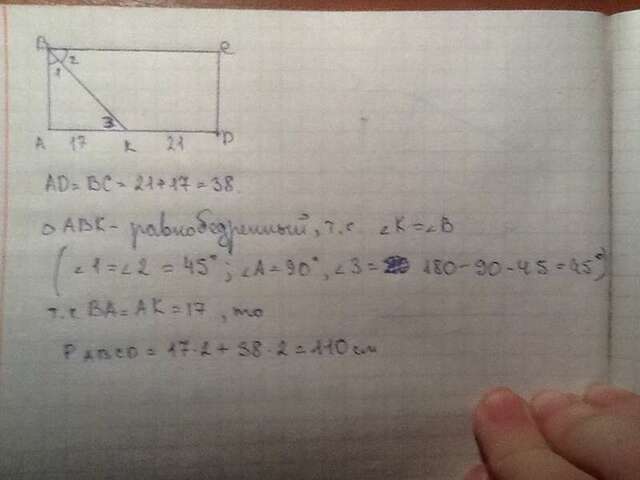 B C
1 2
3
A 17 K 21 D
AD = BC = 21+17 = 38.
△ ABK - равнобедренный, т.к. ∠K = ∠B
( ∠1 = ∠2 = 45°; ∠A = 90°, ∠3 = 180-90-45 = 45°)
т.к BA = AK = 17, то
P ABCD = 17·2 + 38·2 = 110 см